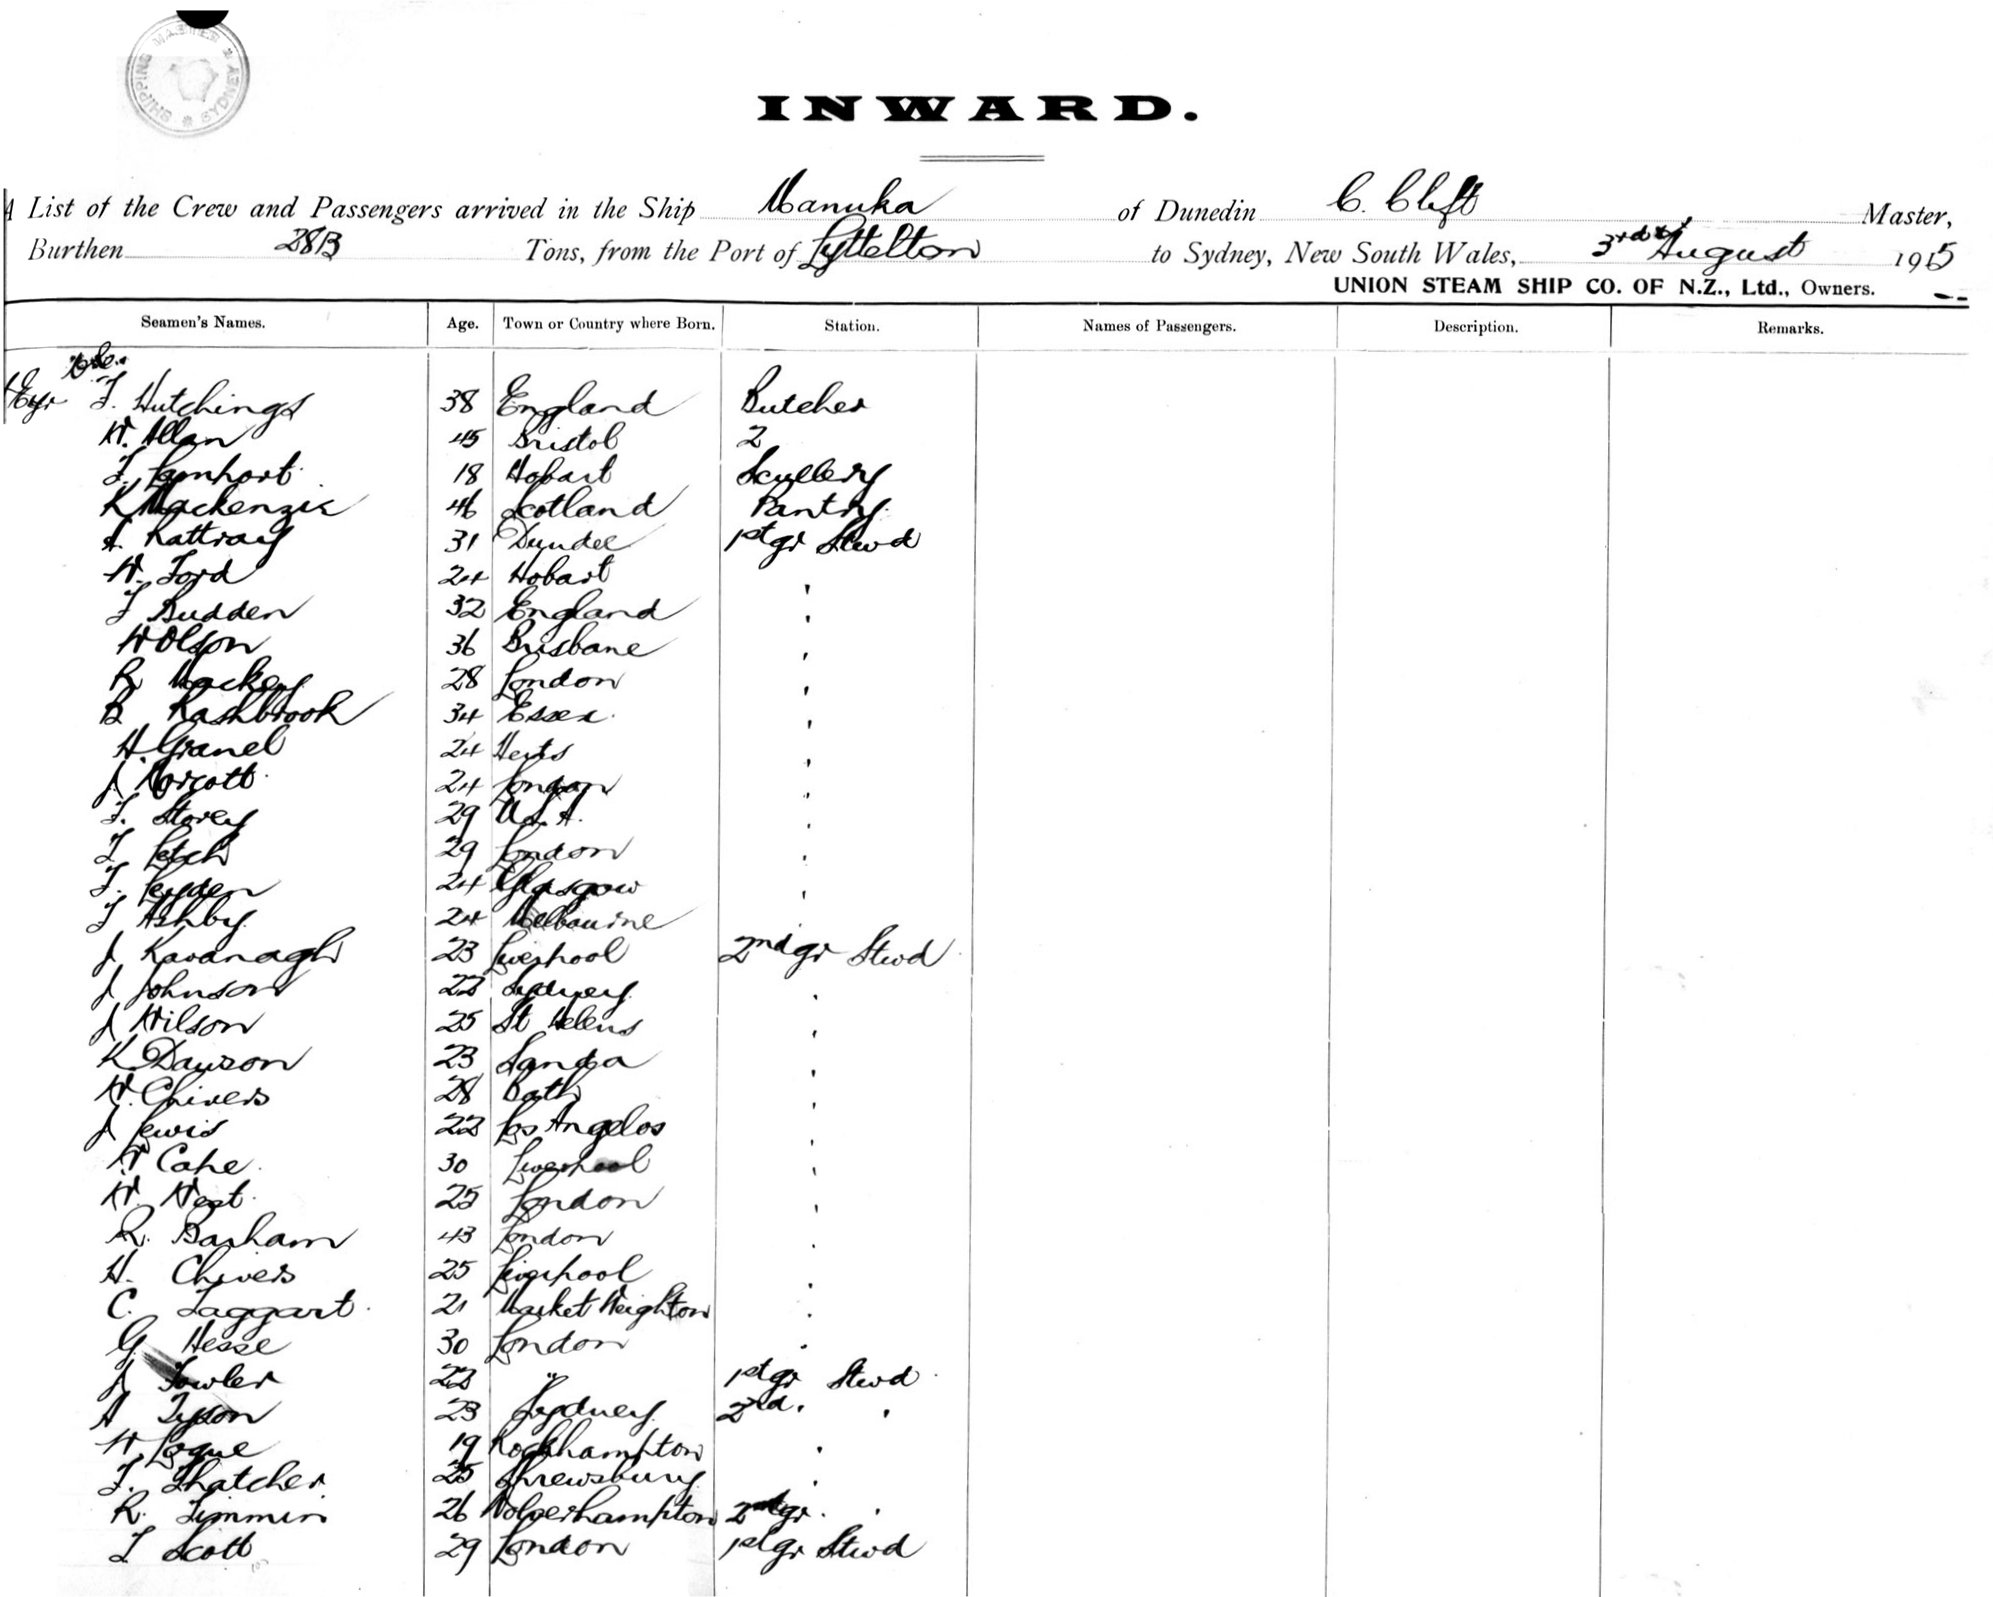 SHIPPING MASTER * SYDNEY *
INWARD.
A List of the Crew and Passengers arrived in the Ship Manuka of Dunedin C. Clift Master,
Burthen Tons, from the Port of Lyttelton to Sydney, New South Wales, 3rd August 1915
UNION STEAM SHIP CO. OF N.Z., Ltd., Owners.
Seamen's Names. Age. Town or Country where Born. Station. Names of Passengers. Description. Remarks.
F. Hutchings 38 England Butcher
W. Allan 45 Bristol 2
18 Hobart Scullery
K Mackenzie 46 Scotland Pantry
A. Rattray 31 Dundee 1st gr Stwd
W. Ford 24 Hobart "
F Budden 32 England "
W Olson 36 Brisbane "
R Mackey 28 London "
B Rashbrook 34 Essex "
H. Granel 24 Herts "
J 24 London "
F. Storey 29 U.S.A. "
29 London "
F. Leyden 24 Glasgow "
F Ashby 24 Melbourne
J Kavanagh 23 Liverpool 2nd gr Stwd
J Johnson 22 Sydney "
J Wilson 25 St Helens "
K Dawson 23 "
W. Chivers 28 Bath "
J Lewis 22 Los Angelos "
W Cape 30 Liverpool "
W. West 25 London "
R. Barham 43 London "
H. Chivers 25 Liverpool "
C. Taggart 21 Market Weighton "
G. Hesse 30 London "
J Fowler 22 " 1st gr Stwd
A Tyson 23 Sydney 2nd " "
W. Logue 19 Rockhampton "
F. Thatcher 25 Shrewsbury "
R. Timmin 26 Wolverhampton 2nd gr "
F Scott 29 London 1st gr Stwd